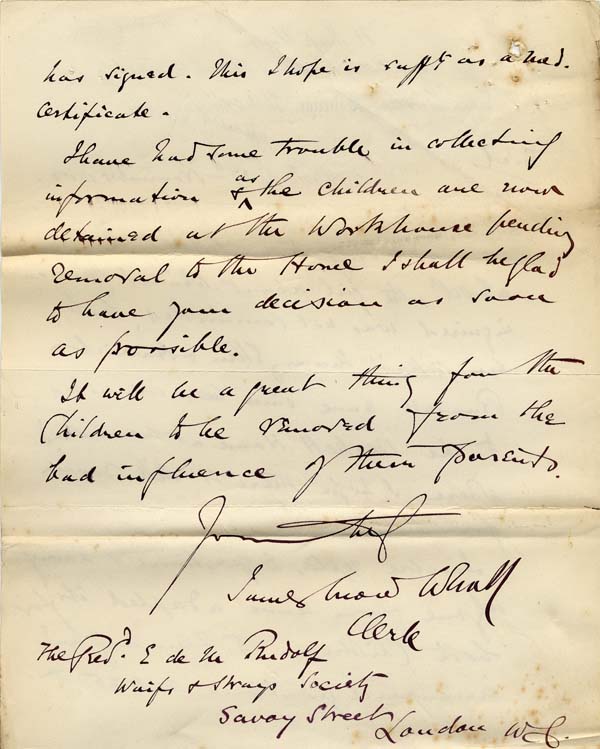 has signed. This I hope is sufft as a med.
certificate.
I have had some trouble in collecting
information & as the children are now
detained at the Workhouse pending
removal to the Home I shall be glad
to have your decision as soon
as possible.
It will be a great thing for the
Children to be removed from the
bad influence of their parents.
Yours
James Whall
Clerk
The Revd. E de M Rudolf
Waifs & Strays Society
Savoy Street London W.C.